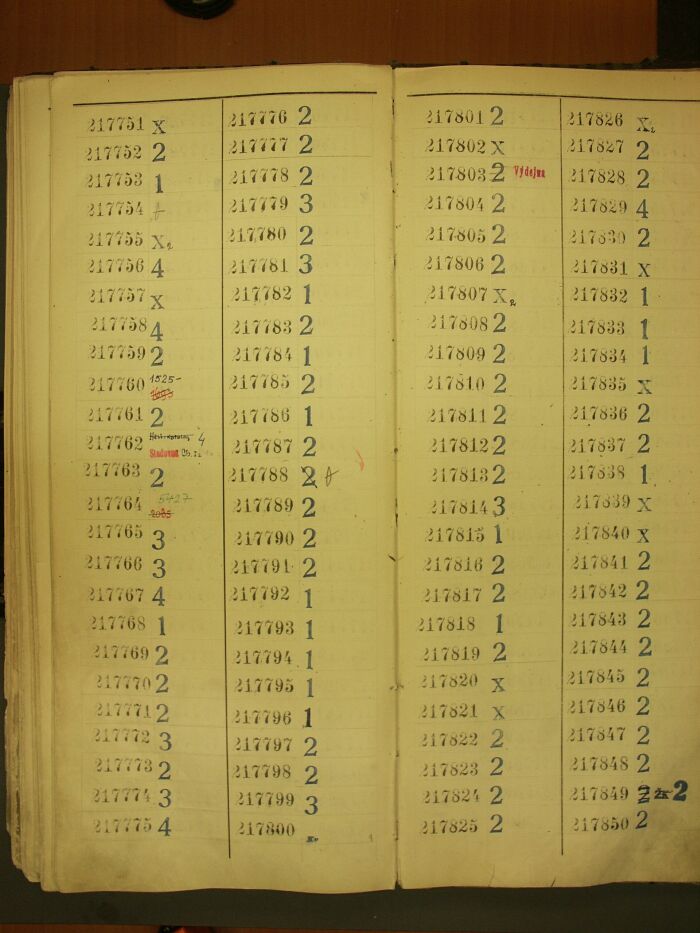 217751 x
217752 2
217753 1
217754 A
217755 x2
217756 4
217757 x
217758 4
217759 2
217760 1525-
217761 2
217762 4
Studovna
217763 2
217764 5427
2085
217765 3
217766 3
217767 4
217768 1
217769 2
217770 2
217771 2
217772 3
217773 2
217774 3
217775 4
217776 2
217777 2
217778 2
217779 3
217780 2
217781 3
217782 1
217783 2
217784 1
217785 2
217786 1
217787 2
217788 2 A
217789 2
217790 2
217791 2
217792 1
217793 1
217794 1
217795 1
217796 1
217797 2
217798 2
217799 3
217800
217801 2
217802 x
217803 2 Výdejna
217804 2
217805 2
217806 2
217807 x2
217808 2
217809 2
217810 2
217811 2
217812 2
217813 2
217814 3
217815 1
217816 2
217817 2
217818 1
217819 2
217820 x
217821 x
217822 2
217823 2
217824 2
217825 2
217826 x2
217827 2
217828 2
217829 4
217830 2
217831 x
217832 1
217833 1
217834 1
217835 x
217836 2
217837 2
217838 1
217839 x
217840 x
217841 2
217842 2
217843 2
217844 2
217845 2
217846 2
217847 2
217848 2
217849 2 2x 2
217850 2